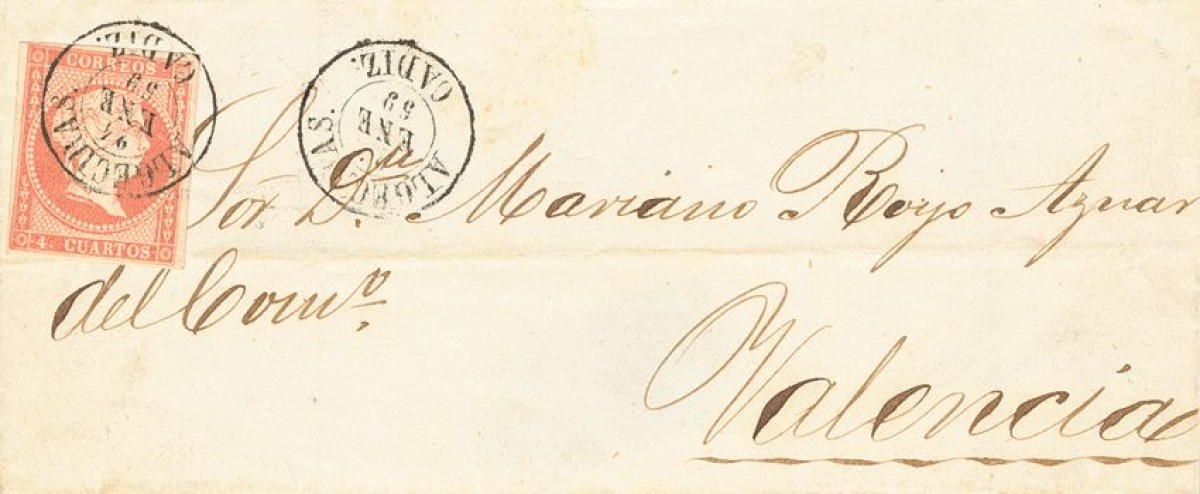 CORREOS
4 CUARTOS
ALGECIRAS.
ENE
59
CADIZ.
ALGECIRAS.
ENE
59
CADIZ.
Sor Dn. Mariano Royo Aznar
del Comº.
Valencia